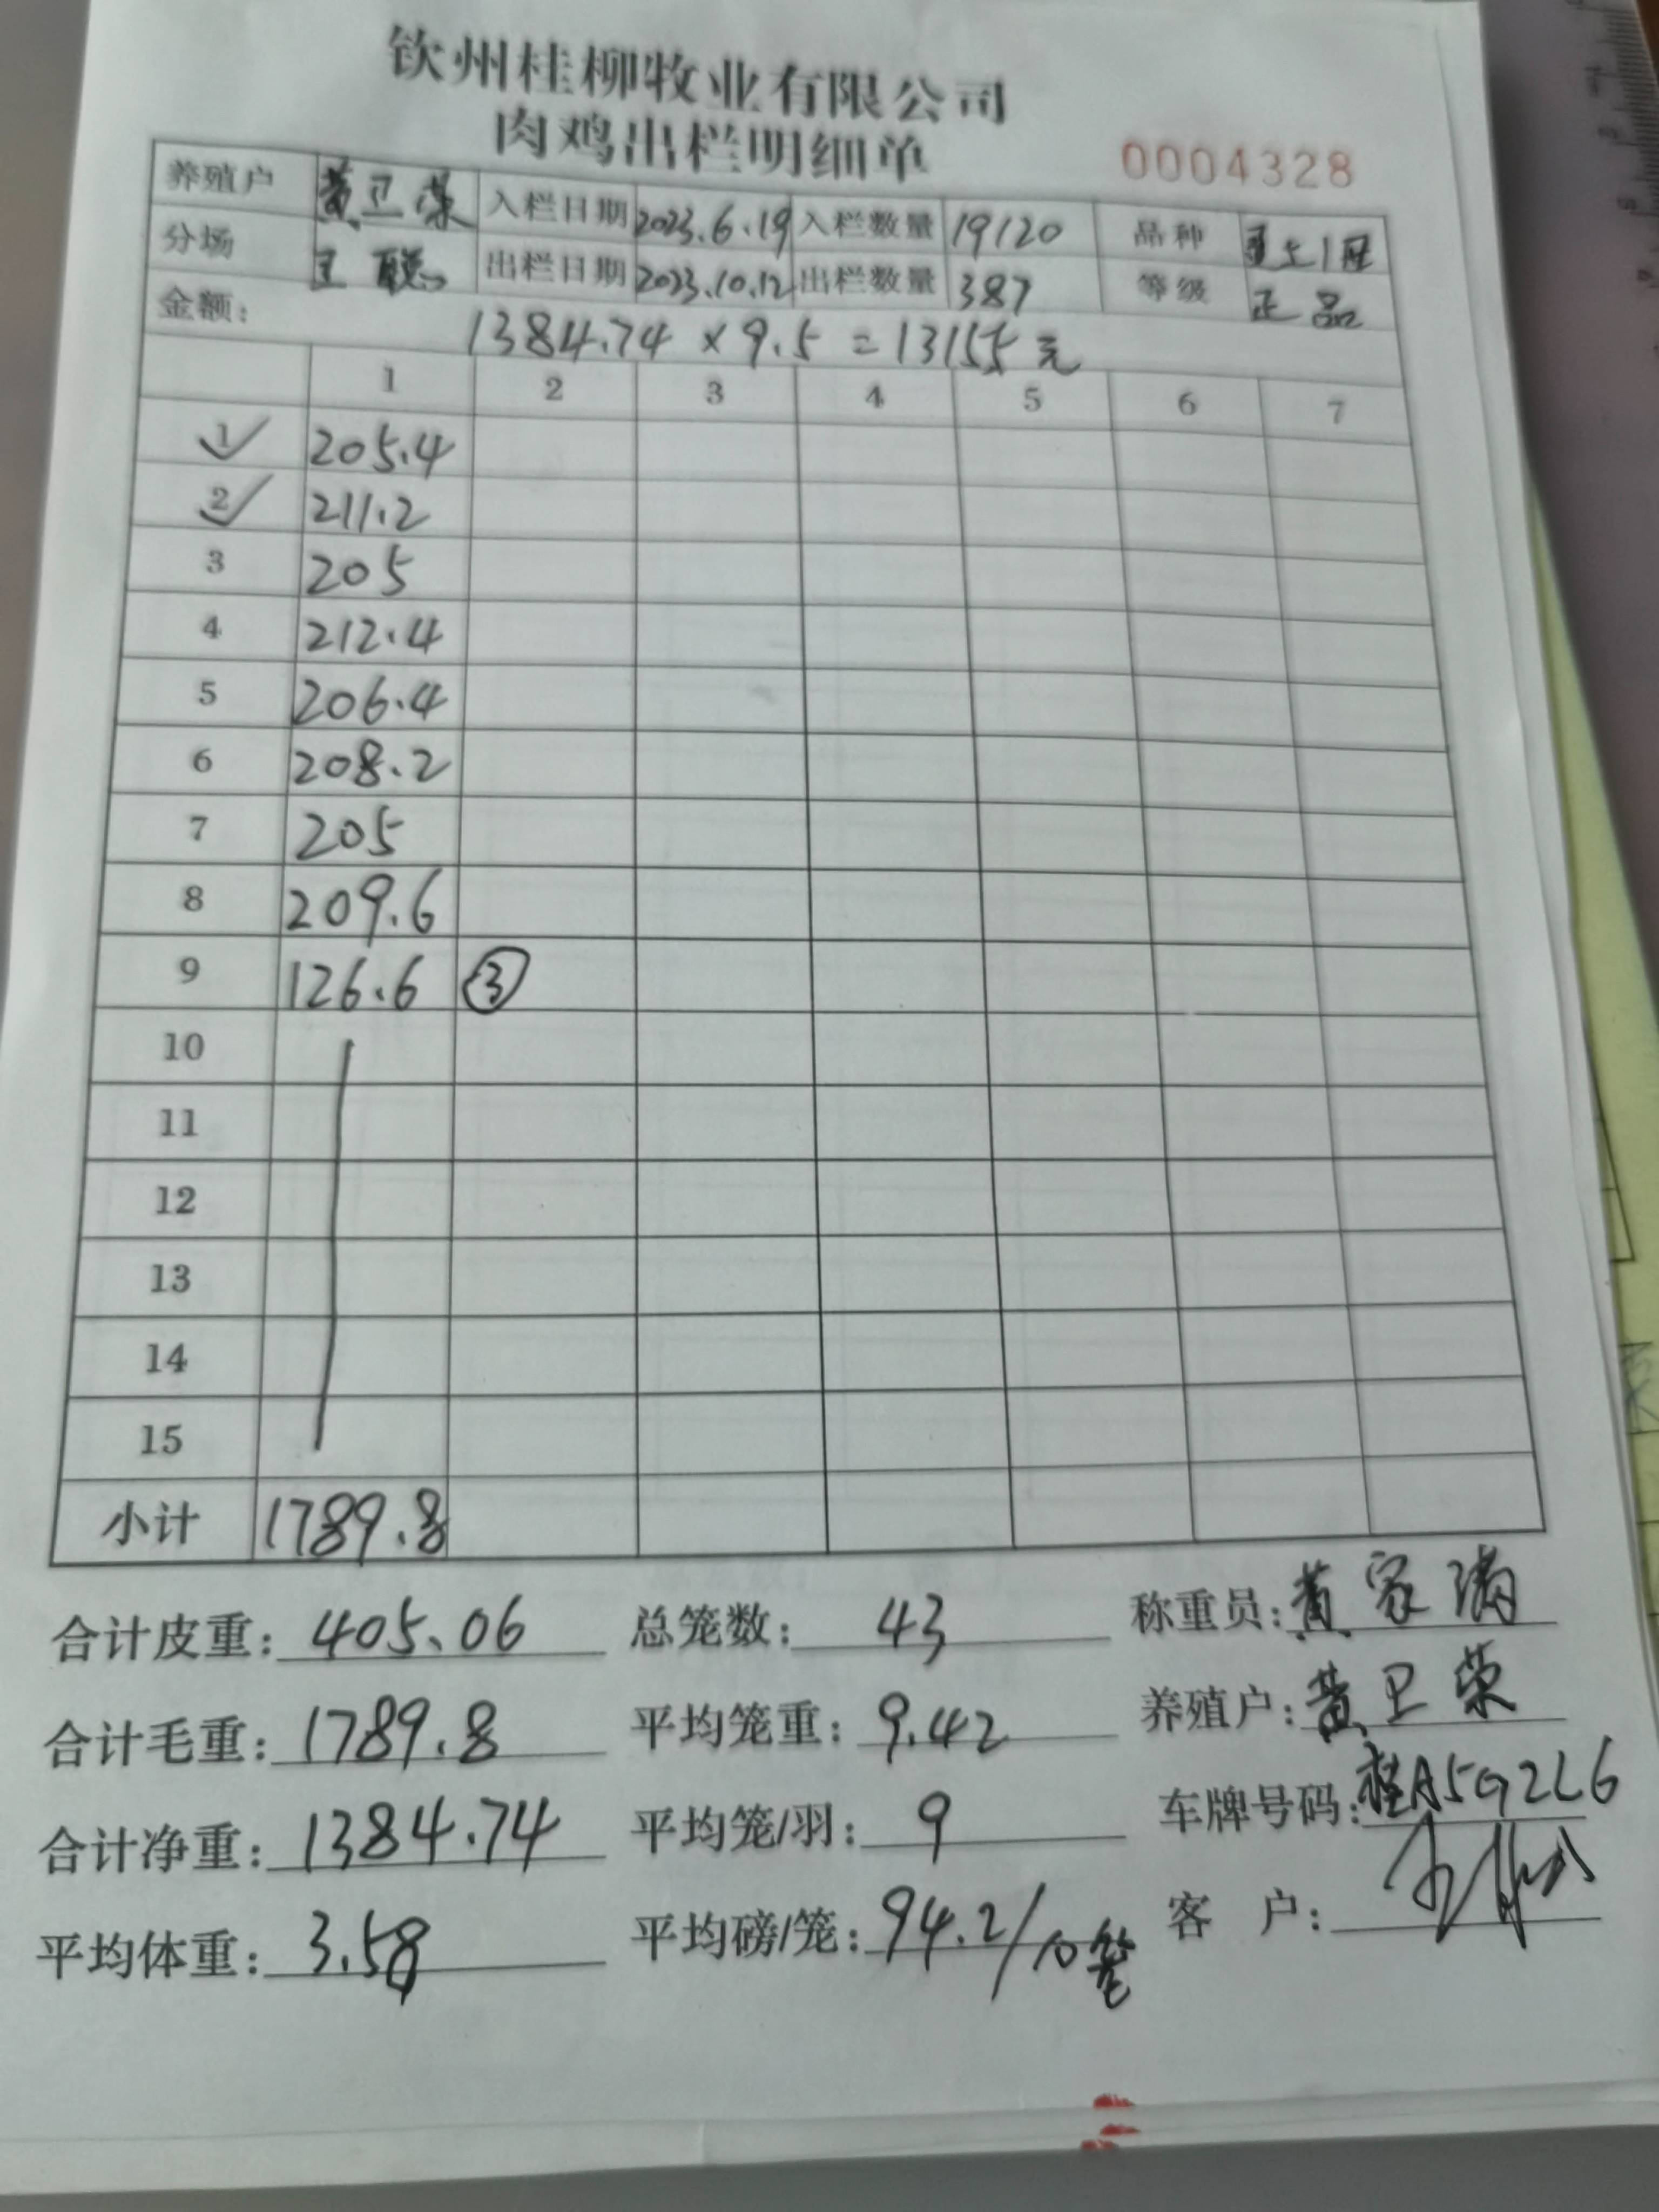 钦州桂柳牧业有限公司
肉鸡出栏明细单
0004328
养殖户 黄卫荣 入栏日期 2023.6.19 入栏数量 19120 品种
分场 王聪 出栏日期 2023.10.12 出栏数量 387 等级 正品
金额: 1384.74 × 9.5 = 13155元
1 2 3 4 5 6 7
1 205.4
2 211.2
3 205
4 212.4
5 206.4
6 208.2
7 205
8 209.6
9 126.6 ③
10
11
12
13
14
15
小计 1789.8
合计皮重: 405.06 总笼数: 43 称重员: 黄家满
合计毛重: 1789.8 平均笼重: 9.42 养殖户: 黄卫荣
合计净重: 1384.74 平均笼/羽: 9 车牌号码: 桂A5G2L6
平均体重: 3.58 平均磅/笼: 94.2/10笼 客 户: